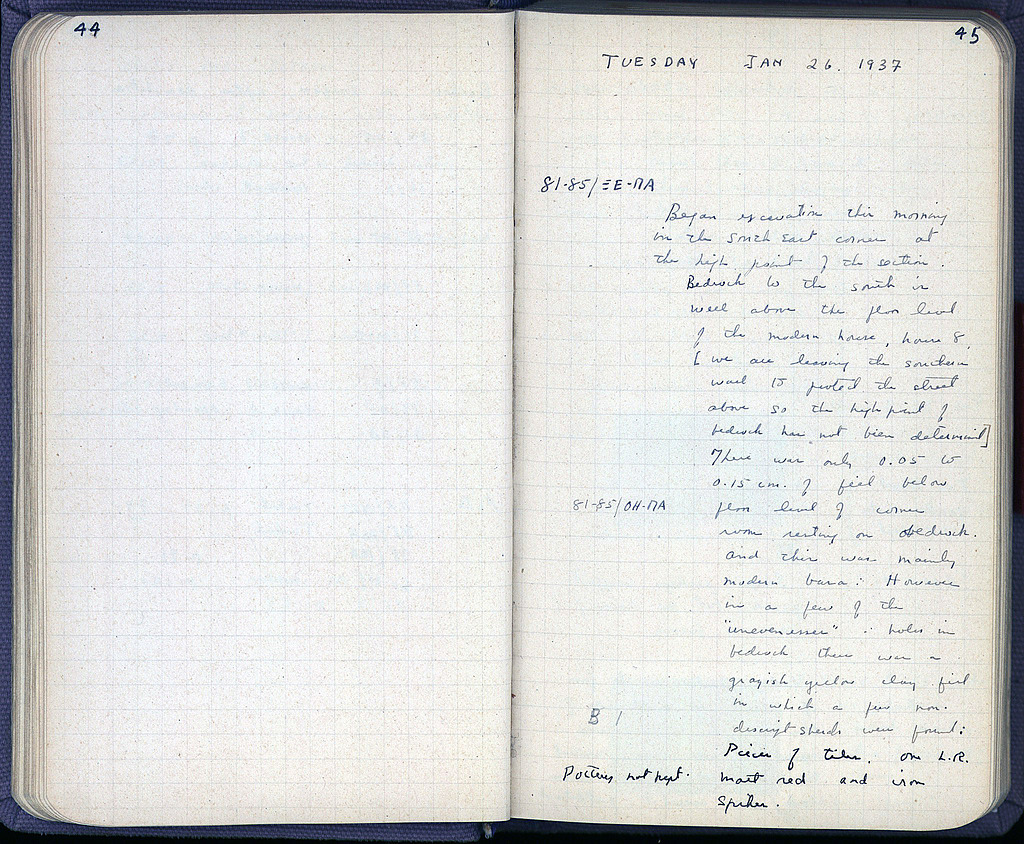 44
45
TUESDAY JAN 26. 1937
81-85/ΞE-ΠA
Began excavation this morning
in the south east corner at
the high point of the section.
Bedrock to the south is
well above the floor level
of the modern house, house 8,
[we are leaving the southern
wall to protect the street
above so the high point of
bedrock has not been determined]
There was only 0.05 to
0.15 cm. of fill below
81-85/OH-ΠA
floor level of corner
room resting on bedrock.
and this was mainly
modern
However
in a few of the
"unevenesses" : holes in
bedrock there was a
grayish yellow clay fill
in which a few non-
descript sherds were found:
B 1
Pieces of tiles, one L.R.
Pottery not kept.
red and iron
spikes.